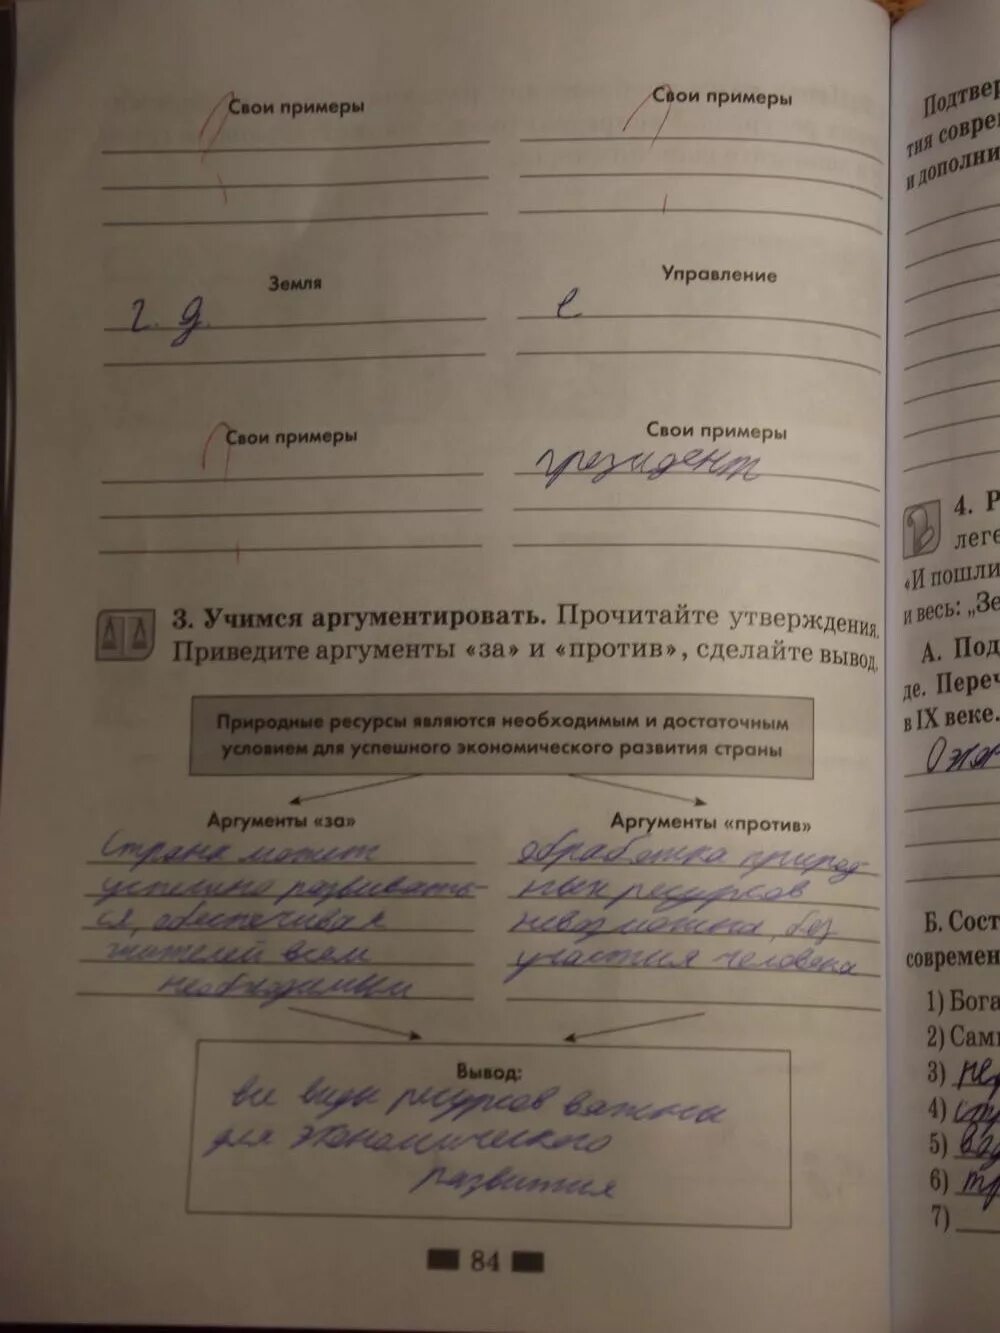 Свои примеры
Свои примеры
Земля
Управление
г. д.
е
Свои примеры
Свои примеры
президент
3. Учимся аргументировать. Прочитайте утверждения.
Приведите аргументы «за» и «против», сделайте вывод.
Природные ресурсы являются необходимым и достаточным
условием для успешного экономического развития страны
Аргументы «за»
Страна может
успешно развивать-
ся, обеспечивая
жителей всем
необходимым
Аргументы «против»
обработка природ
ных ресурсов
невозможна, без
участия человека
Вывод:
все виды ресурсов важны
для экономического
развития
84
Подтвер
тия соврем
и дополни
4. Р
леге
«И пошли
и весь: „Зе
А. Под
де. Переч
в IX веке.
Б. Сост
современ
1) Бога
2) Сами
3)
4)
5)
6)
7)